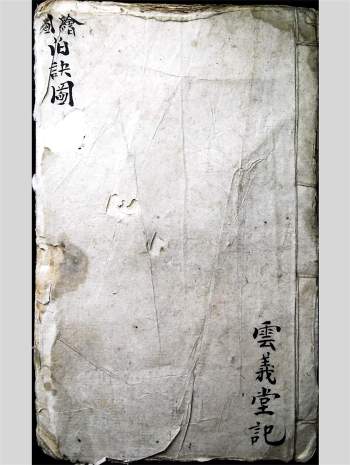 繪
泊訣圖
雲義堂記